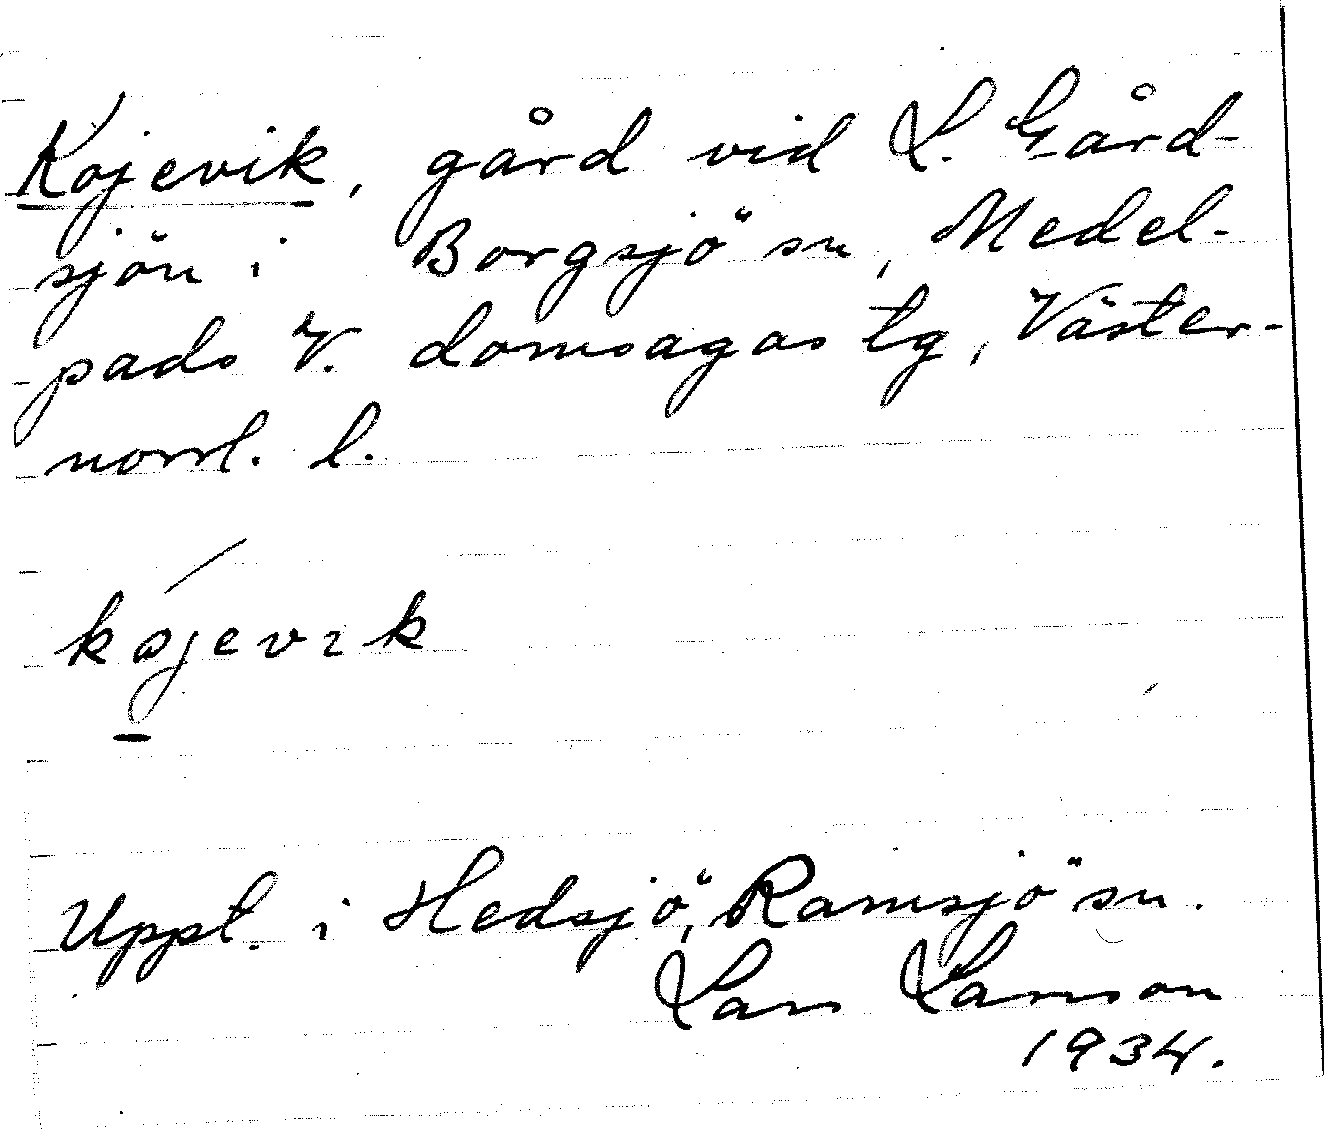 Kojevik, gård vid L. Gård-
sjön i Borgsjö sn, Medel-
pads V. domsagas tg, Väster-
norrl. l.
kojevik
Uppl. i Hedsjö, Ramsjö sn.
Lars Larsson
1934.